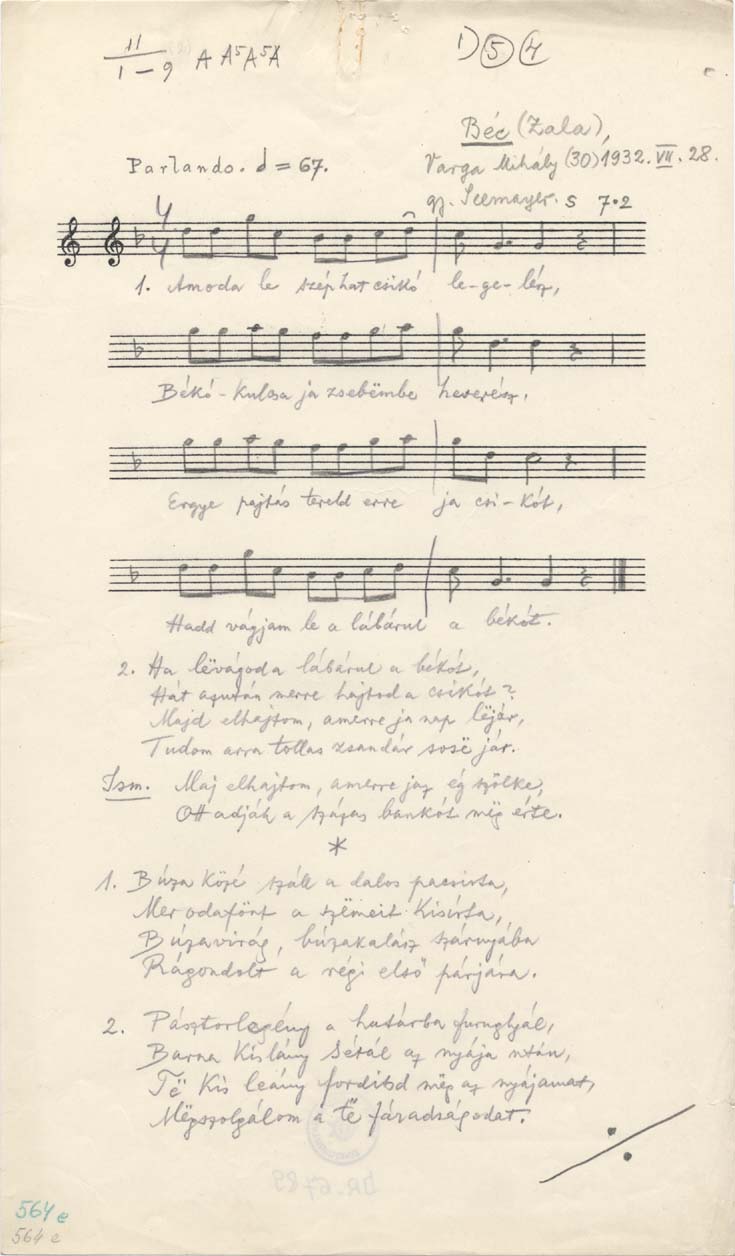 11
1-9 A A⁵A⁵A
1) 5 4
Béc (Zala),
Parlando. = 67.
Varga Mihály (30) 1932. VII. 28.
gy. Seemayer. S 7.2
4
4
1. Amoda le szép hat csikó le-ge-lész,
Békó-kulcsa ja zsebëmbe heverész,
Ergye pajtás tereld erre ja csi-kót,
Hadd vágjam le a lábárul a békót.
2. Ha lëvágod a lábárul a békót,
Hát azután merre hajtod a csikót?
Majd elhajtom, amerre ja nap lëjár,
Tudom arra tollas zsandár sosë jár.
Ism. Maj elhajtom, amerre jaz ég szölke,
Ott adják a százas bankót mëg érte.
*
1. Búza közé száll a dalos pacsirta,
Mer odafönt a szëmeit kisírta,
Búzavirág, búzakalász szárnyába
Rágondolt a régi első párjára.
2. Pásztorlegény a határba furugljál,
Barna kislány sétál az nyája után,
Të kis leány fordítsd mëg az nyájamat,
Mëgszolgálom a të fáradságodat.
564 e
564 e